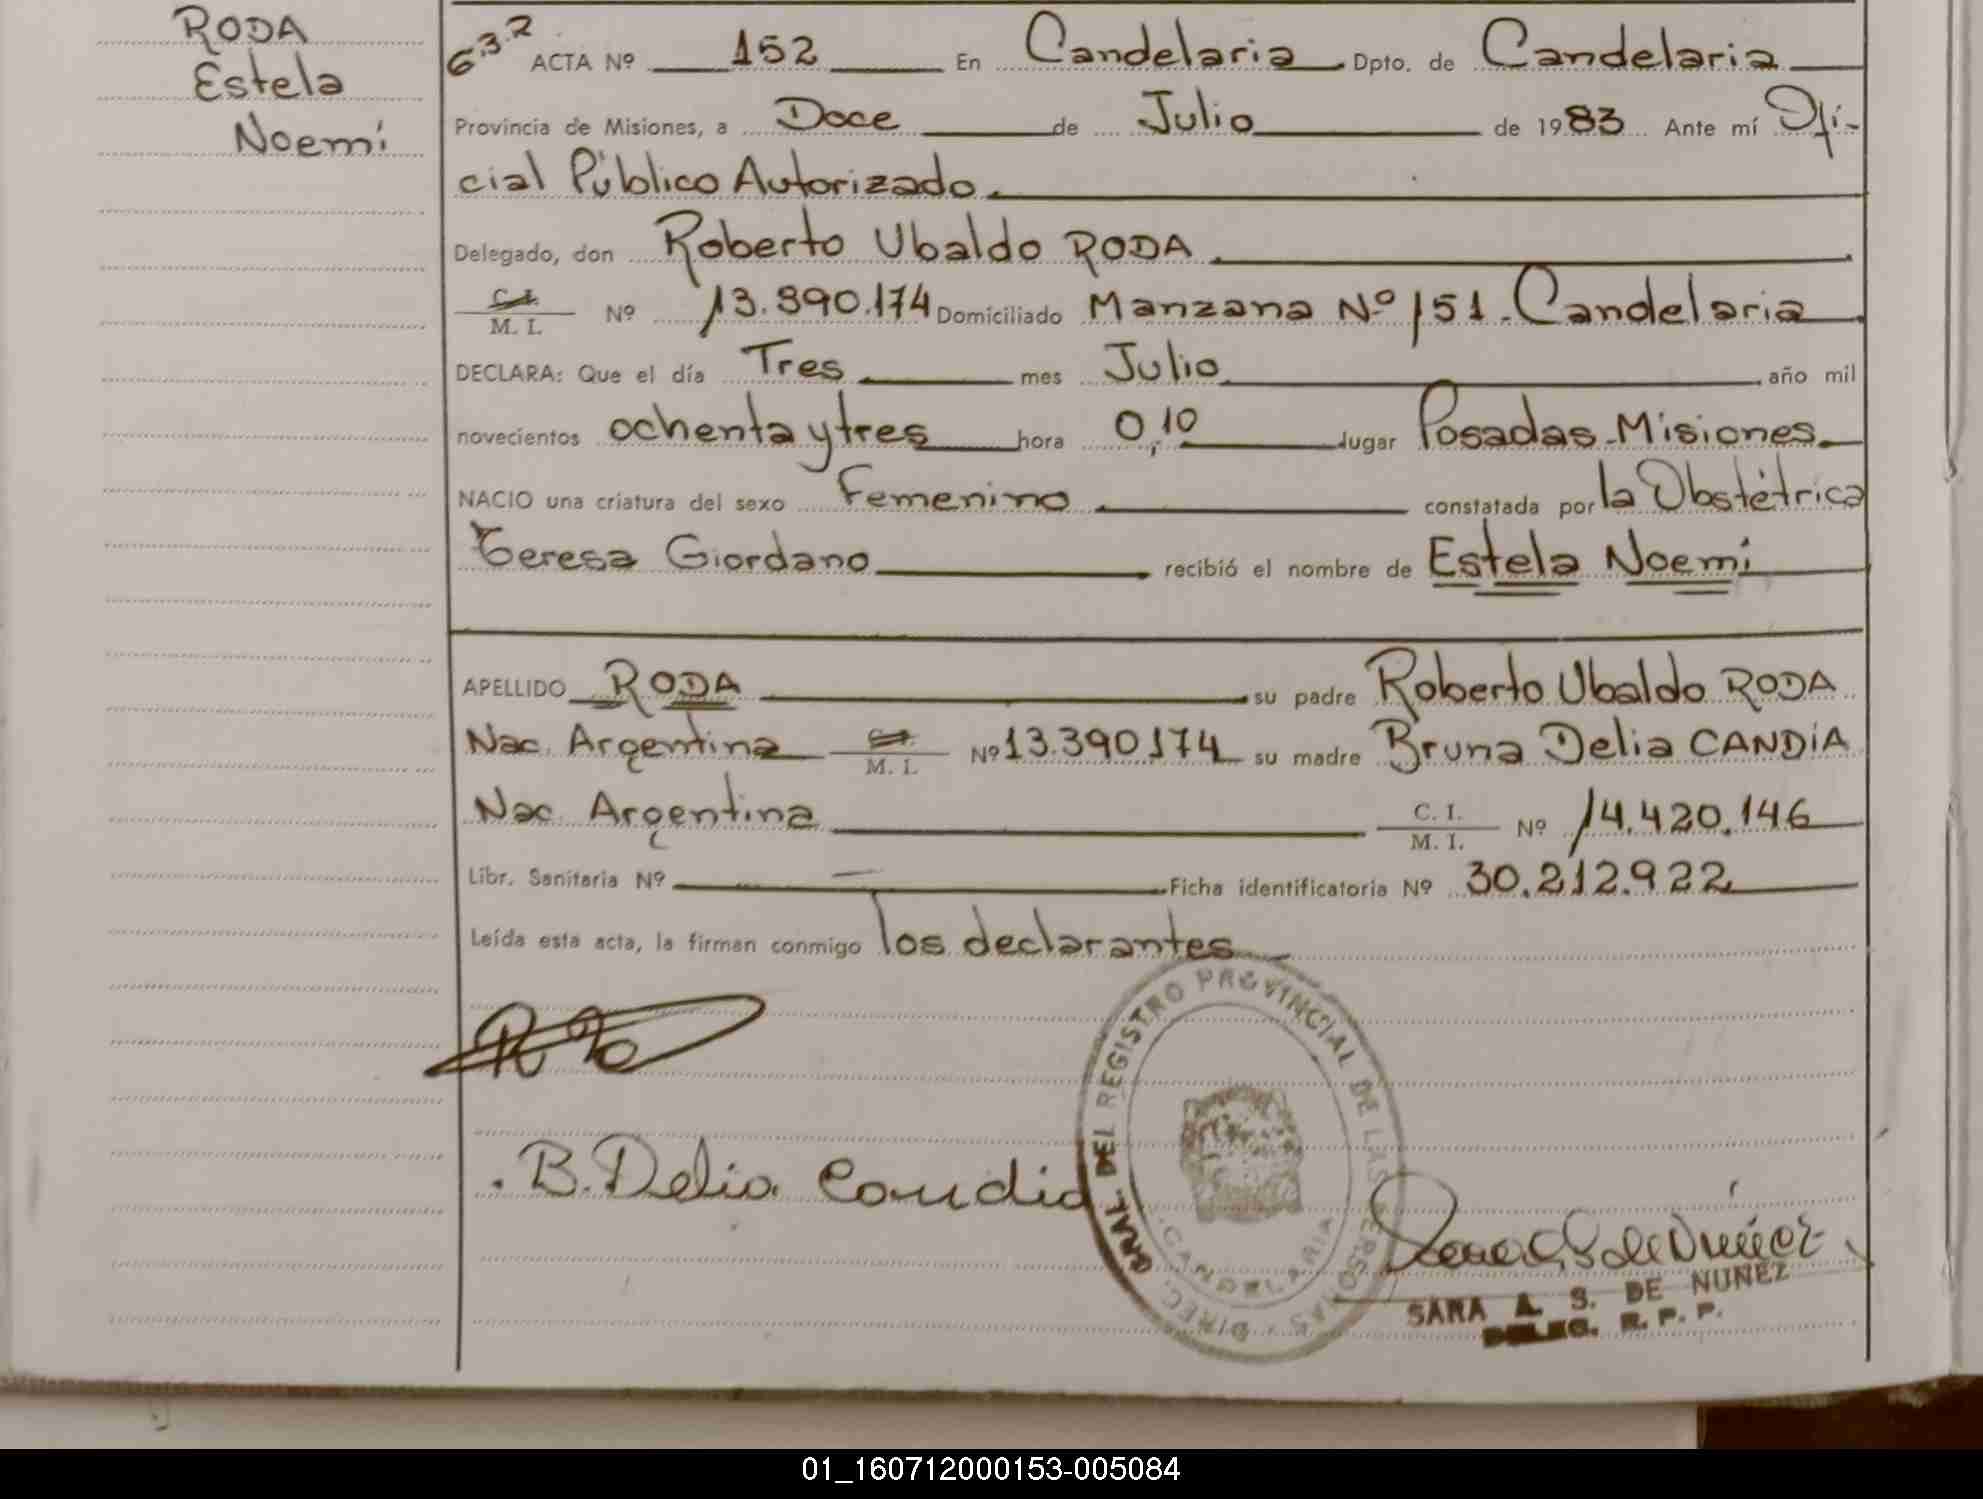 RODA
Estela
Noemi
632 ACTA Nº 152 En Candelaria Dpto. de Candelaria
Provincia de Misiones, a Doce de Julio de 1983 Ante mí Ofi-
cial Público Autorizado
Delegado, don Roberto Ubaldo RODA
C. I.
M. I. Nº 13.390.174 Domiciliado Manzana Nº 151. Candelaria
DECLARA: Que el día Tres mes Julio año mil
novecientos ochenta y tres hora 0,10 lugar Posadas-Misiones
NACIO una criatura del sexo Femenino constatada por la Obstétrica
Teresa Giordano recibió el nombre de Estela Noemi
APELLIDO RODA su padre Roberto Ubaldo RODA
Nac. Argentina C. I. M. I. Nº 13.390.174 su madre Bruna Delia CANDIA
Nac. Argentina C. I. M. I. Nº 14.420.146
Libr. Sanitaria Nº — Ficha identificatoria Nº 30.212.922
Leída esta acta, la firman conmigo los declarantes
B. Delia Candia
DIREC. GRAL. DEL REGISTRO PROVINCIAL DE LAS PERSONAS
CANDELARIA
SARA A. S. DE NUÑEZ
DELEG. R. P. P.
01_160712000153-005084